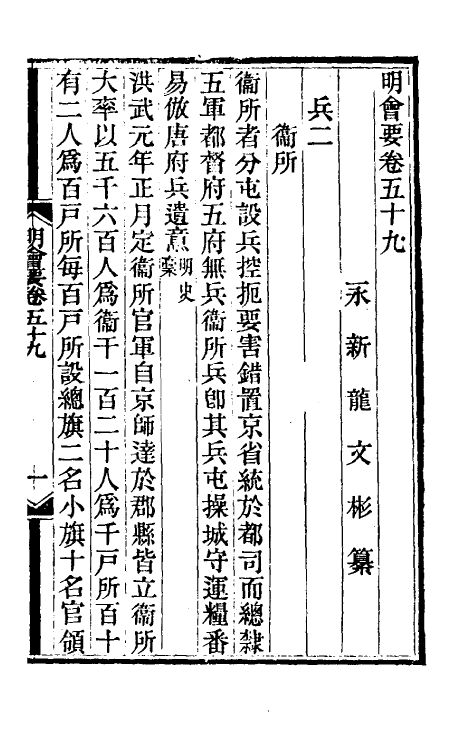 明會要卷五十九
永新龍文彬纂
兵二
衞所
衞所者分屯設兵控扼要害錯置京省統於都司而總隸
五軍都督府五府無兵衞所兵卽其兵屯操城守運糧番
易倣唐府兵遺意明史稾
洪武元年正月定衞所官軍自京師達於郡縣皆立衞所
大率以五千六百人爲衞千一百二十人爲千戸所百十
有二人爲百戸所每百戸所設總旗二名小旗十名官領
明會要卷五十九
一